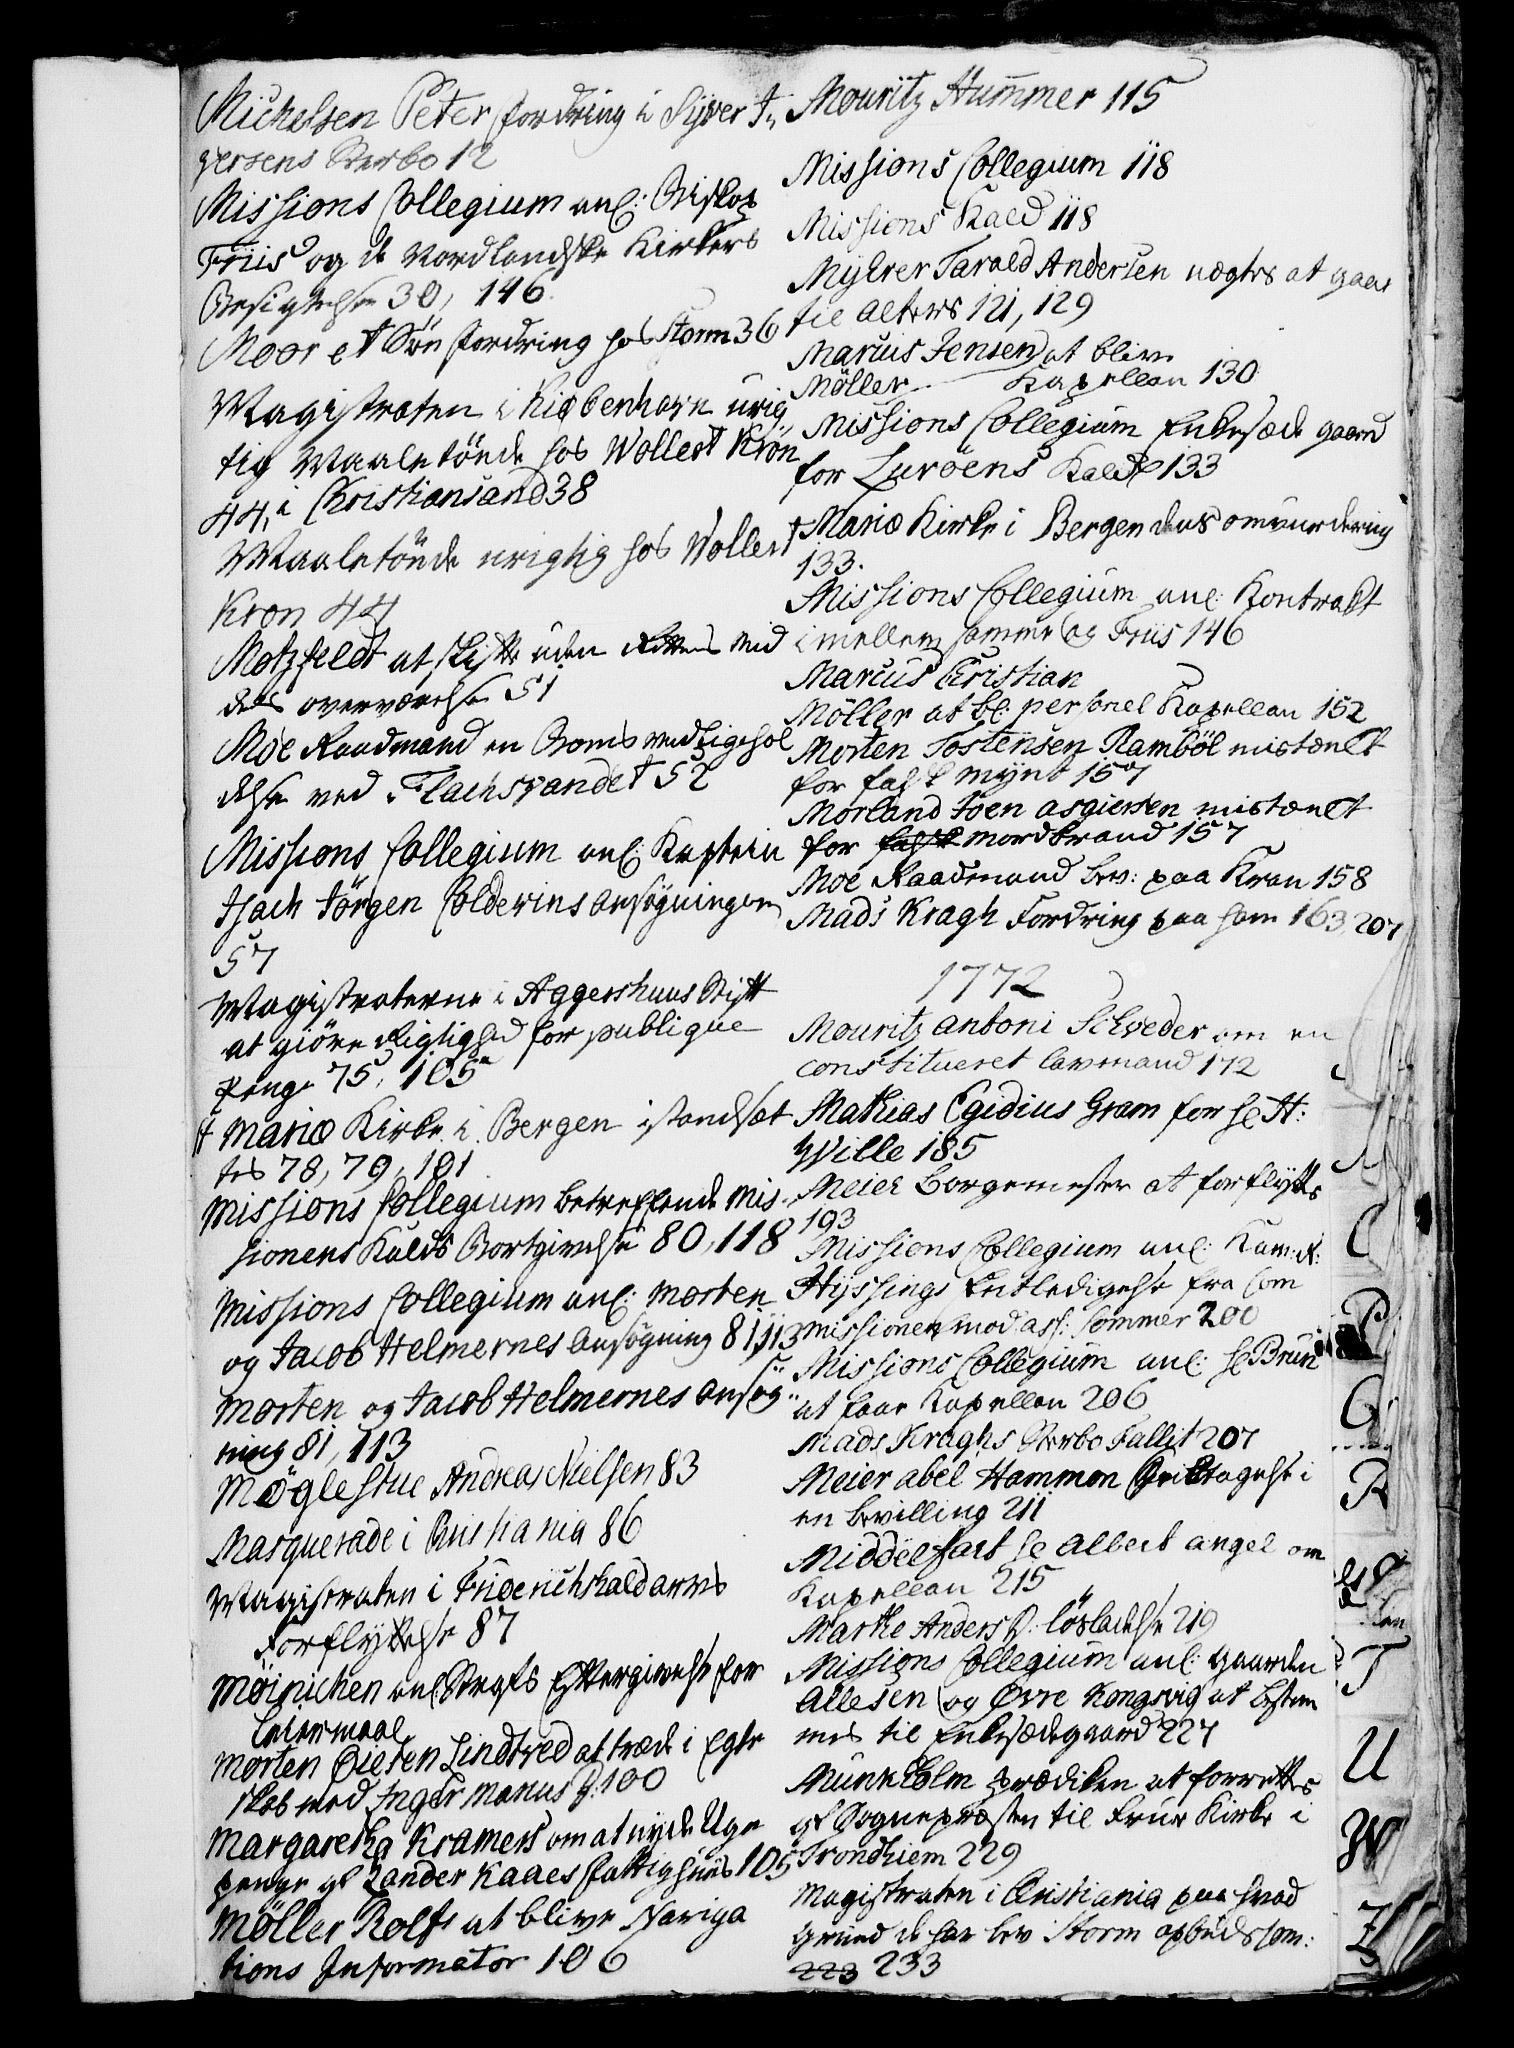 Michelsen Peter fordring i Syver J,,
versens Sterbo 12
Missions Collegium anl: Biskop
Friis og de Nordlandske Kirkers
Besigtelse 39, 146.
Moor et Søn fordring hos Storm 36
Magistraten i Kiøbenhavn urig,,
tig Maaletønde hos Wollert Kron
44, i Christiansand 38
Maaletønde urigtig hos Wollert
Kron 44
Motzfeldt at skifte uden Rettens Mid
dels overværelse 51
Moe Raadmand en Boms vedligehol
delse ved Flachsvandet 52
Missions Collegium anl: Kaptein
Isach Jørgen Colderins ansøgning om
57
Magistraterne i Aggershuus Stift
at giøre Rigtighed for publique
Penge 75, 105
Mariæ Kirke i Bergen istandsæt
tes 78, 79, 101
Missions Collegium betreffende Mis-
sionens Kalds Bortgivelse 80, 118
Missions Collegium anl: Morten
og Jacob Helmernes ansøgning 81, 113
Morten og Jacob Helmernes ansøg
ning 81, 113
Møglestue Andreas Nielsen 83
Masquerade i Christiania 86
Magistraten i Friderichshald
Forflyttelse 87
Møinichen anl: Strafs Eftergivelse for
Leiermaal
Morten Olesen Lindtved at træde i Egte
skab med Inger Manus D. 100
Margaretha Kramers om at nyde Uge
penge af Zander Kaaes fattighuus 105
Møller Rolfs at blive Naviga
tions Informator 106
Mouritz Hummer 115
Missions Collegium 118
Missions Kald 118
Myhrer Tarald Andersen nægtes at gaae
til Alters 121, 129
Marcus Jensen at blive
Møller Kapellan 130
Missions Collegium Enkesæde gaard
for Lurøens Kald 133
Mariæ Kirke i Bergen dens omvurdering
133.
Missions Collegium anl: Kontrakt
imellem samme og Friis 146
Marcus Christian
Møller at bl: personel Kapellan 152
Morten Tostensen Rambøl mistænkt
for falsk Mynt 157
Morland Joen Asgiersen mistænkt
for falsk mordbrand 157
Moe Raadmand bev: paa Kran 158
Mads Kragh Fordring paa ham 163, 207
1772
Mouritz Antoni Schrøder om en
constitueret Lavmand 172
Mathias Egidius Gram for Hr H:
Wille 185
Meier Borgemester at forflyttes
193
Missions Collegium anl: Kam: R:
Hyssings Entledigelse fra Com
missionen mod ass: Sommer 200
Missions Collegium anl: Hr Brun
at faae Kapellan 206
Mads Kraghs Sterbo Fallit 207
Meier Abel Hammon Deeltagelse i
en bevilling 211
Middelfart Hr Albert Angel om
Kapellan 215
Marthe Anders D: løsladelse 219
Missions Collegium anl: Gaarden
Allesen og Øvre Kongsvig at bestem
mes til Enkesædegaard 227
Munkholm prædiken at forrettes
af Sognepræsten til Frue Kirke i
Trondhiem 229
Magistraten i Christiania paa hvad
Grund de har bev: Storm opbudssom:
223 233
C
P
G
R
T
U
W
Z